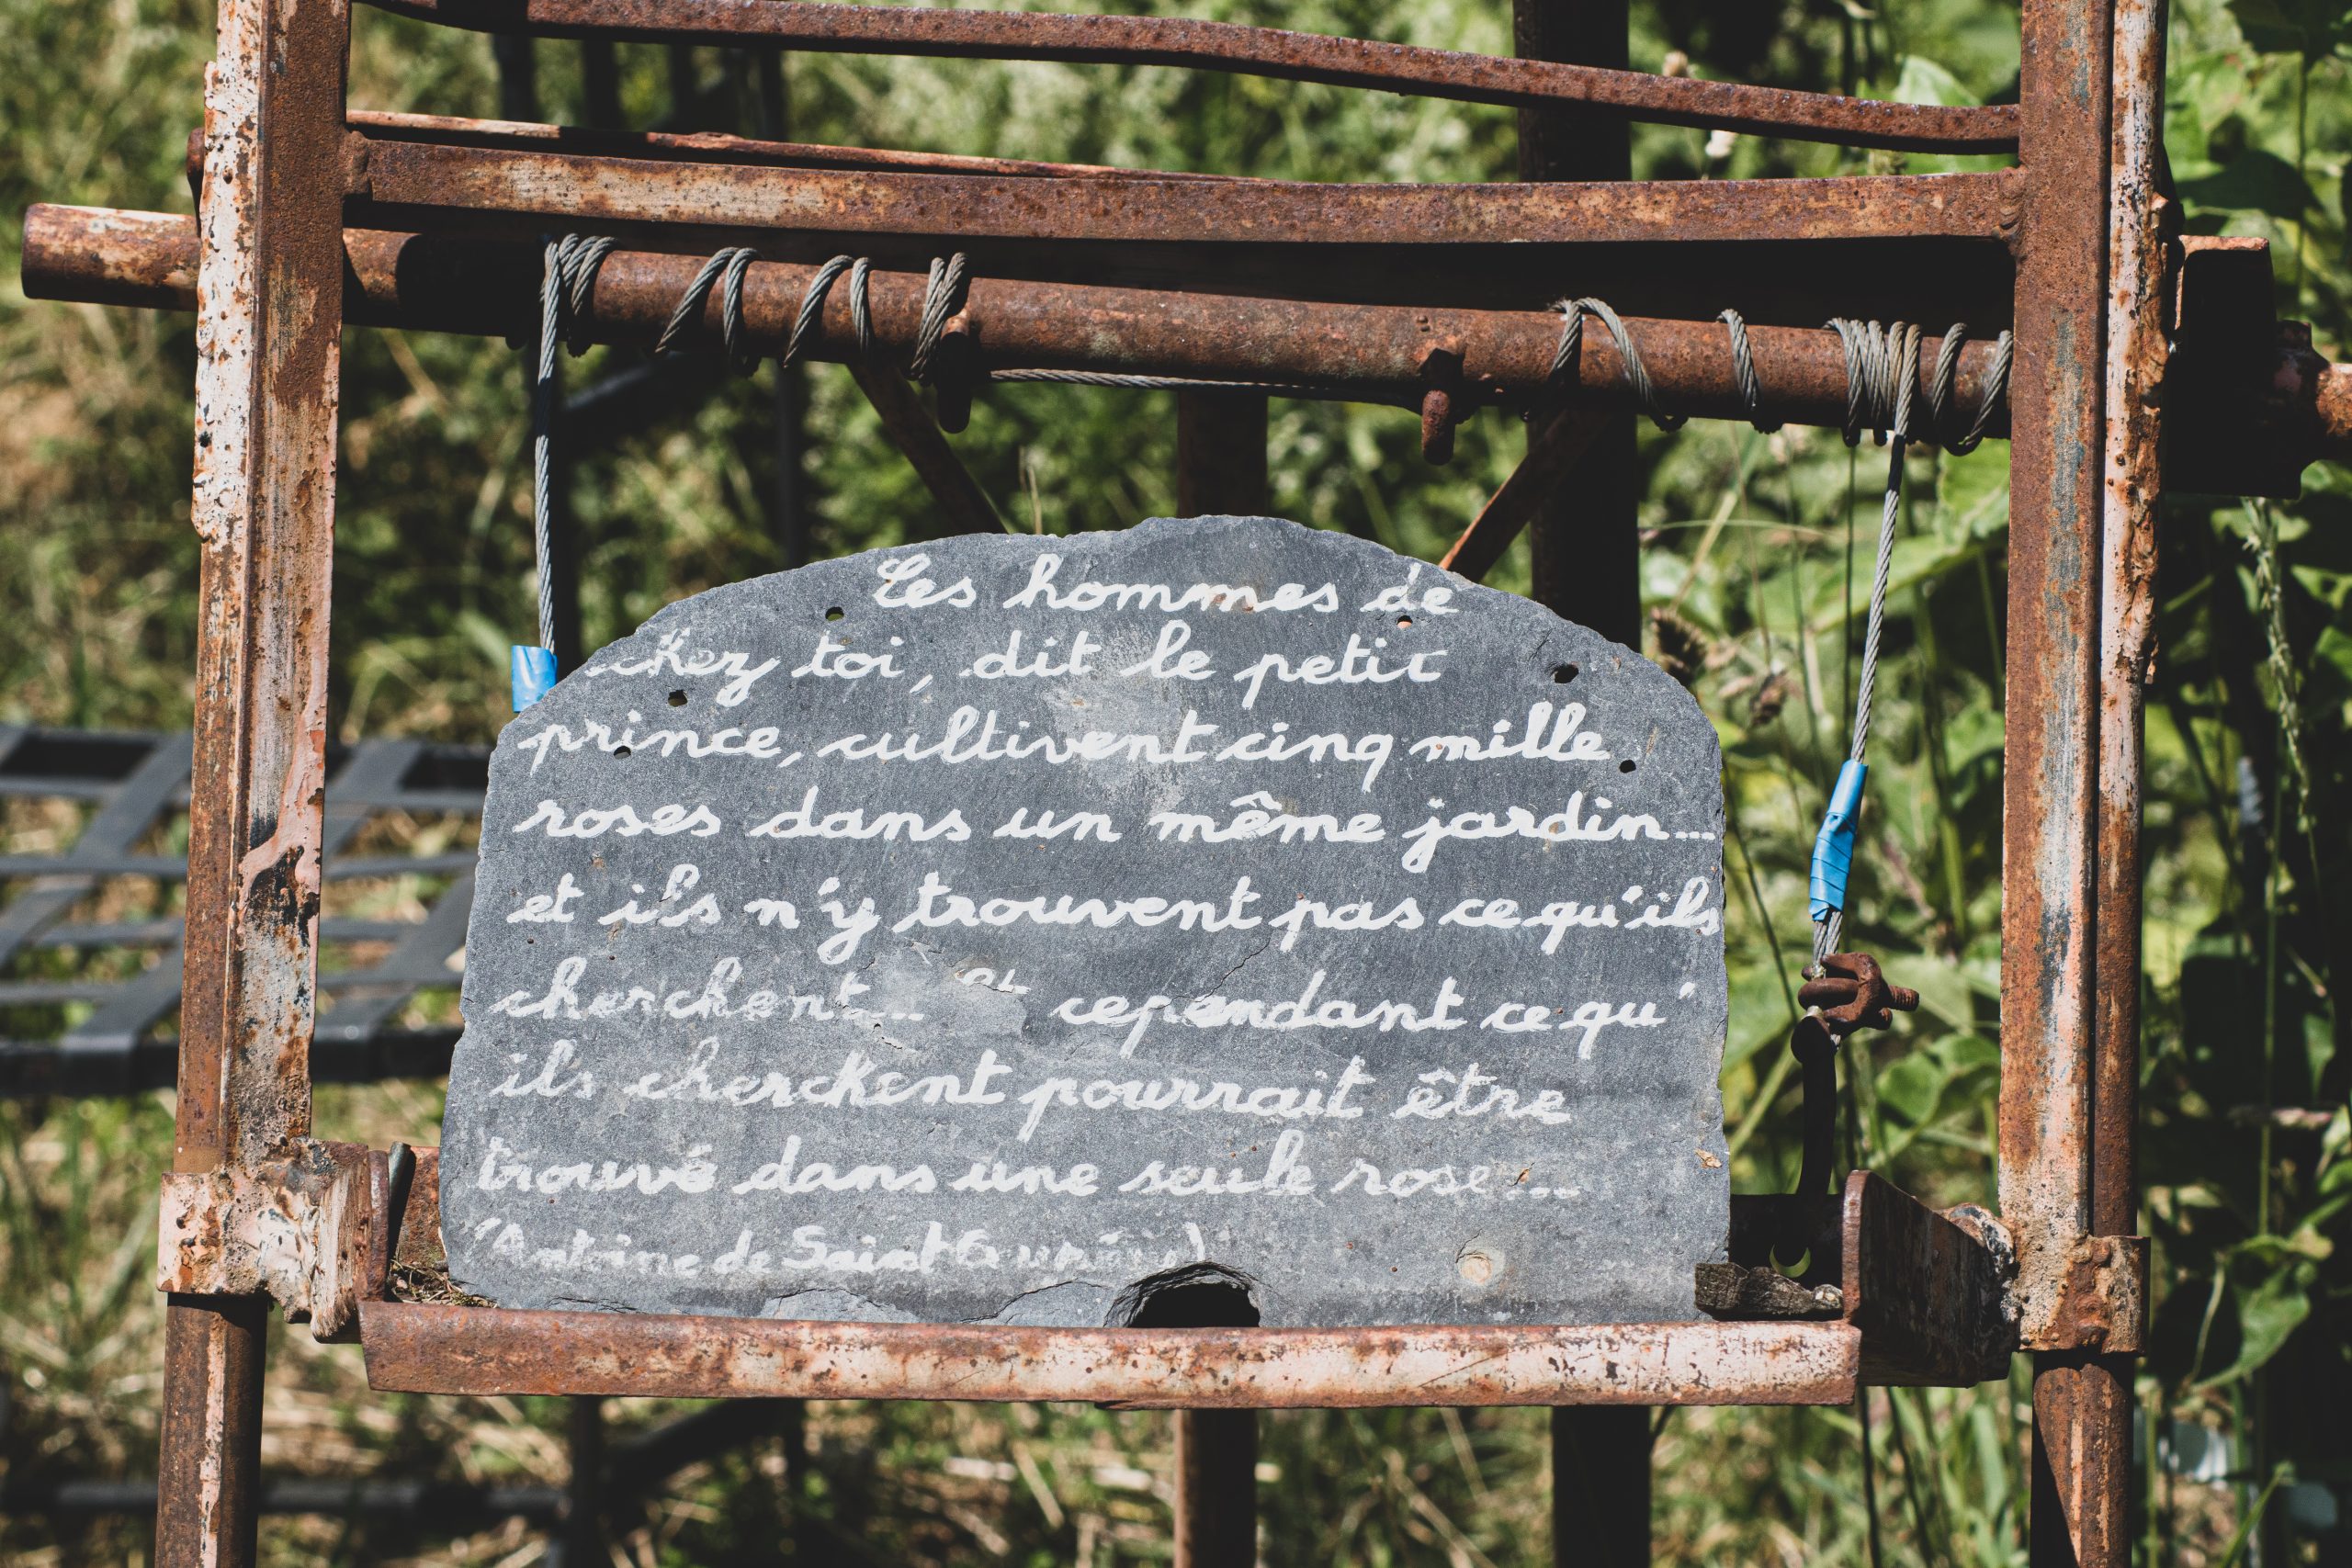 Les hommes de
chez toi, dit le petit
prince, cultivent cinq mille
roses dans un même jardin...
et ils n'y trouvent pas ce qu'ils
cherchent... et cependant ce qu'
ils cherchent pourrait être
trouvé dans une seule rose...
(Antoine de Saint Exupéry)